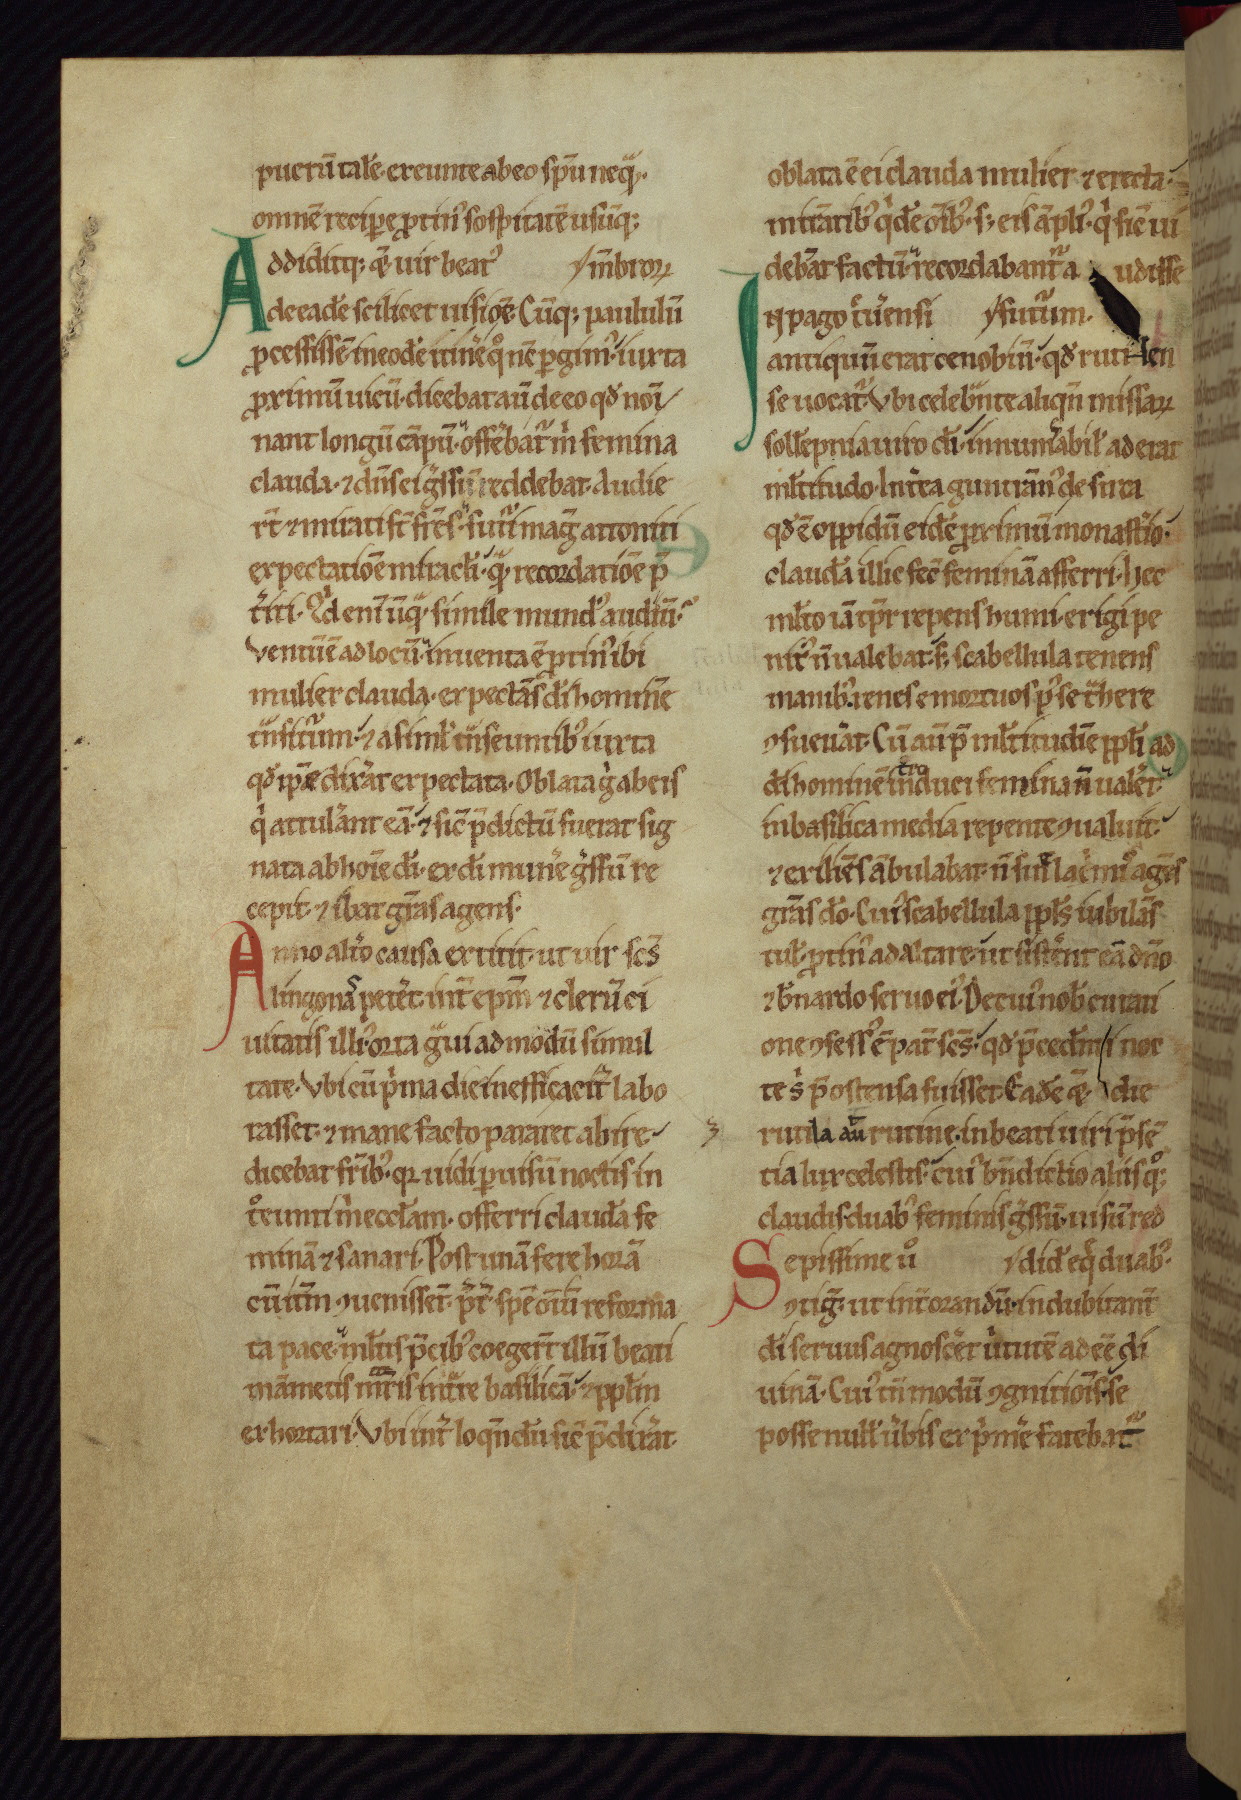 puerū tale͛. exeunte abeo spū neq̈.
omnē recipe ꝓtin᷒ sospitatē usūq;
Addiditq; q̄ uir beat᷒ /m̄brorꝝ
de eade͛ scilicet uisiōe. Cūq; paululū
ꝓcessissē ineode͛ itine͛ qͦ nē ꝑgim᷒. iuxta
ꝓximū uicū. dicebat aū de eo qđ noī
nant longū cāpū. offe͛bat᷑ m̄ femina
clauda. ⁊ dn̄s ei g̈ssū reddebat. Audie
rt̄ ⁊ mirati st̄ frēs. futͥ mag̅ attoniti
expectatiōe miracl̄i. q̈. recordatiōe p̄
t͛iti. Qͥd enī ūq̈. simile mund᷒ audiū.
Ventū ē ad locū. inuenta ē ꝓtin᷒ ibi
mulier clauda. expectās dī hominē
t̄nsitum. ⁊ a simił t̄nseuntib᷒ iuxta
qđ ip̄e dix͛at expectata. Oblata g͛ ab eis
qͥ attul͛ant eā. ⁊ sic̄ p̄dictū fuerat sig
nata ab hoīe dī. ex dī mune͛ g̈ssū re
cepit. ⁊ ibat grās agens.
Anno al̄io causa extitit. ut uir sc̄s
lingonā pete͛t int͛ epm̄ ⁊ clerū ci
uitatis illi᷒ orta g̈ui admodū simul
tate. Vbi cū p͛ma die inefficacit͛ labo
rasset. ⁊ mane facto pararet abire.
dicebat fr̄ib᷒. qꝛ uidi ꝑ uisū noctis in
tͦeunti m̄ eccl̄am. offerri claudā fe
minā ⁊ sanari. Post unā fere horā
cū itm̄ ꝯuenissēt. p̄t͛ spē oīuͫ reforma
ta pace. ml̄tis p̄cib᷒ coeger̄t illū beati
māmetis mr̄is intͣre basilicā. ⁊ ppl̄m
exhortari. Vbi int͛ loq̄ndū sic̄ p̄dix͛at.
oblata ē ei clauda mulier ⁊ erecta.
mirātib᷒ qͥde͛ oīb᷒. s; eis āpli᷒. qͥ sic̄ ui
deb͛at factū. recordabant᷑ a udisse
IN pago t͛uensi /futuͬm.
antiquū erat cenobiū. qđ rutilen
se uocat᷑. Vbi celeb͛nte aliqn̄ missarꝝ
soll̄epnia uiro dī. innum͛abił aderat
ml̄titudo. Int͛ea guntrān᷒ de sura
qđ ē oppidū eide͛ ꝓximū monast͛io.
claudā illic fec̄ feminā afferri. Hec
ml̄to iā tp̄r repens humi. erigi pe
nit᷒ n̄ ualebat. s; scabellula tenens
manib᷒. renes emortuos p᷒ se t͛here
ꝯsueu͛at. Cū aū p̄ ml̄titudiē ppl̄i ad
dī hominē introduci femina n̄ uale͛t.
in basilica media repente ꝯualuit.
⁊ exiliēs ābulabat. n̄ sine lac͛imis agēs
grās do͛. Cui᷒ scabellula ppl̄s iubilās
tul̄. ꝓtin᷒ ad altare. ut siste͛nt eā dn̄o
⁊ b͛nardo seruo ei᷒. De cui᷒ nob̄ curati
one ꝯfess᷒ ē pat͛ sc̄s. qđ p̄cedn̄ti noc
te s͛ p̄ostensa fuisset. Eade͛ q̄. die
rutila aūt rutine. in beati uiri p̄sē
tia lux celestis. cui᷒ bn̄dictio aliis qͦ;
claudis duab᷒ feminis g̈ssū. uisū red
Sepissime uͦ /did͛ eq̄ duab᷒.
ꝯtig̅. ut int͛ orandū. indubitant͛
dī seruus agnosce͛t u͛tutē adeē di
uinā. Cui᷒ tn̄ modū ꝯgnitiōis se
posse null᷒ u͛bis exp͛me͛ fatebat᷑